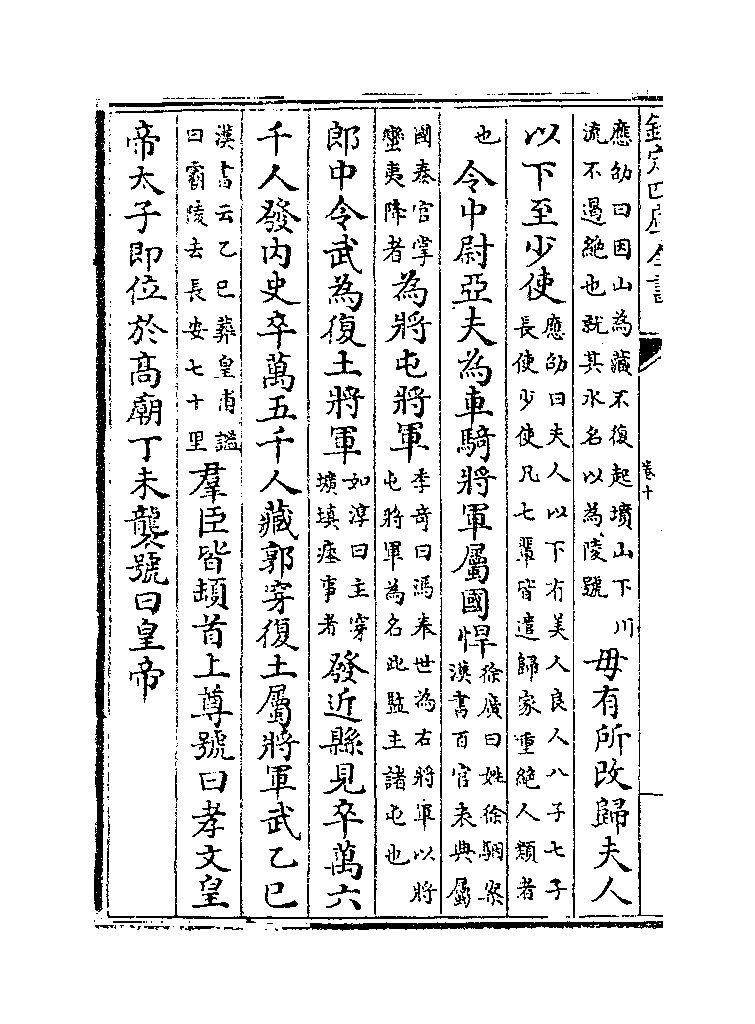 欽定四庫全書
卷十
應劭曰因山為藏不復起墳山下川流不遏絕也就其水名以為陵號毋有所改歸夫人
以下至少使應劭曰夫人以下有美人良人八子七子長使少使凡七輩皆遣歸家重絕人類者
也令中尉亞夫為車騎將軍屬國悍徐廣曰姓徐駰案漢書百官表典屬
國秦官掌蠻夷降者為將屯將軍李竒曰馮奉世為右將軍以將屯將軍為名此監主諸屯也
郎中令武為復土將軍如淳曰主穿壙填瘞事者發近縣見卒萬六
千人發內史卒萬五千人藏郭穿復土屬將軍武乙巳
漢書云乙巳葬皇甫謐曰霸陵去長安七十里羣臣皆頓首上尊號曰孝文皇
帝太子即位於高廟丁未襲號曰皇帝